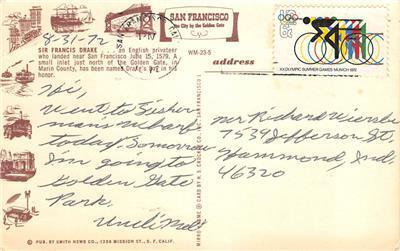 SAN FRANCISCO
The City by the Golden Gate
8-31-72
SIR FRANCIS DRAKE an English privateer
who landed near San Francisco June 15, 1579. A
small inlet just north of the Golden Gate, in
Marin County, has been named Drake's Bay in his
honor.
WM-23-5
address
6c
XX OLYMPIC SUMMER GAMES MUNICH 1972
Hi,
Went to Fisher
man's wharf
today. Tomorrow
I'm going to
Golden Gate
Park.
Uncle Mel
Mr Richard
7539 Jefferson St,
Hammond, Ind.
46320
© PUB. BY SMITH NEWS CO., 1358 MISSION ST., S. F. CALIF.